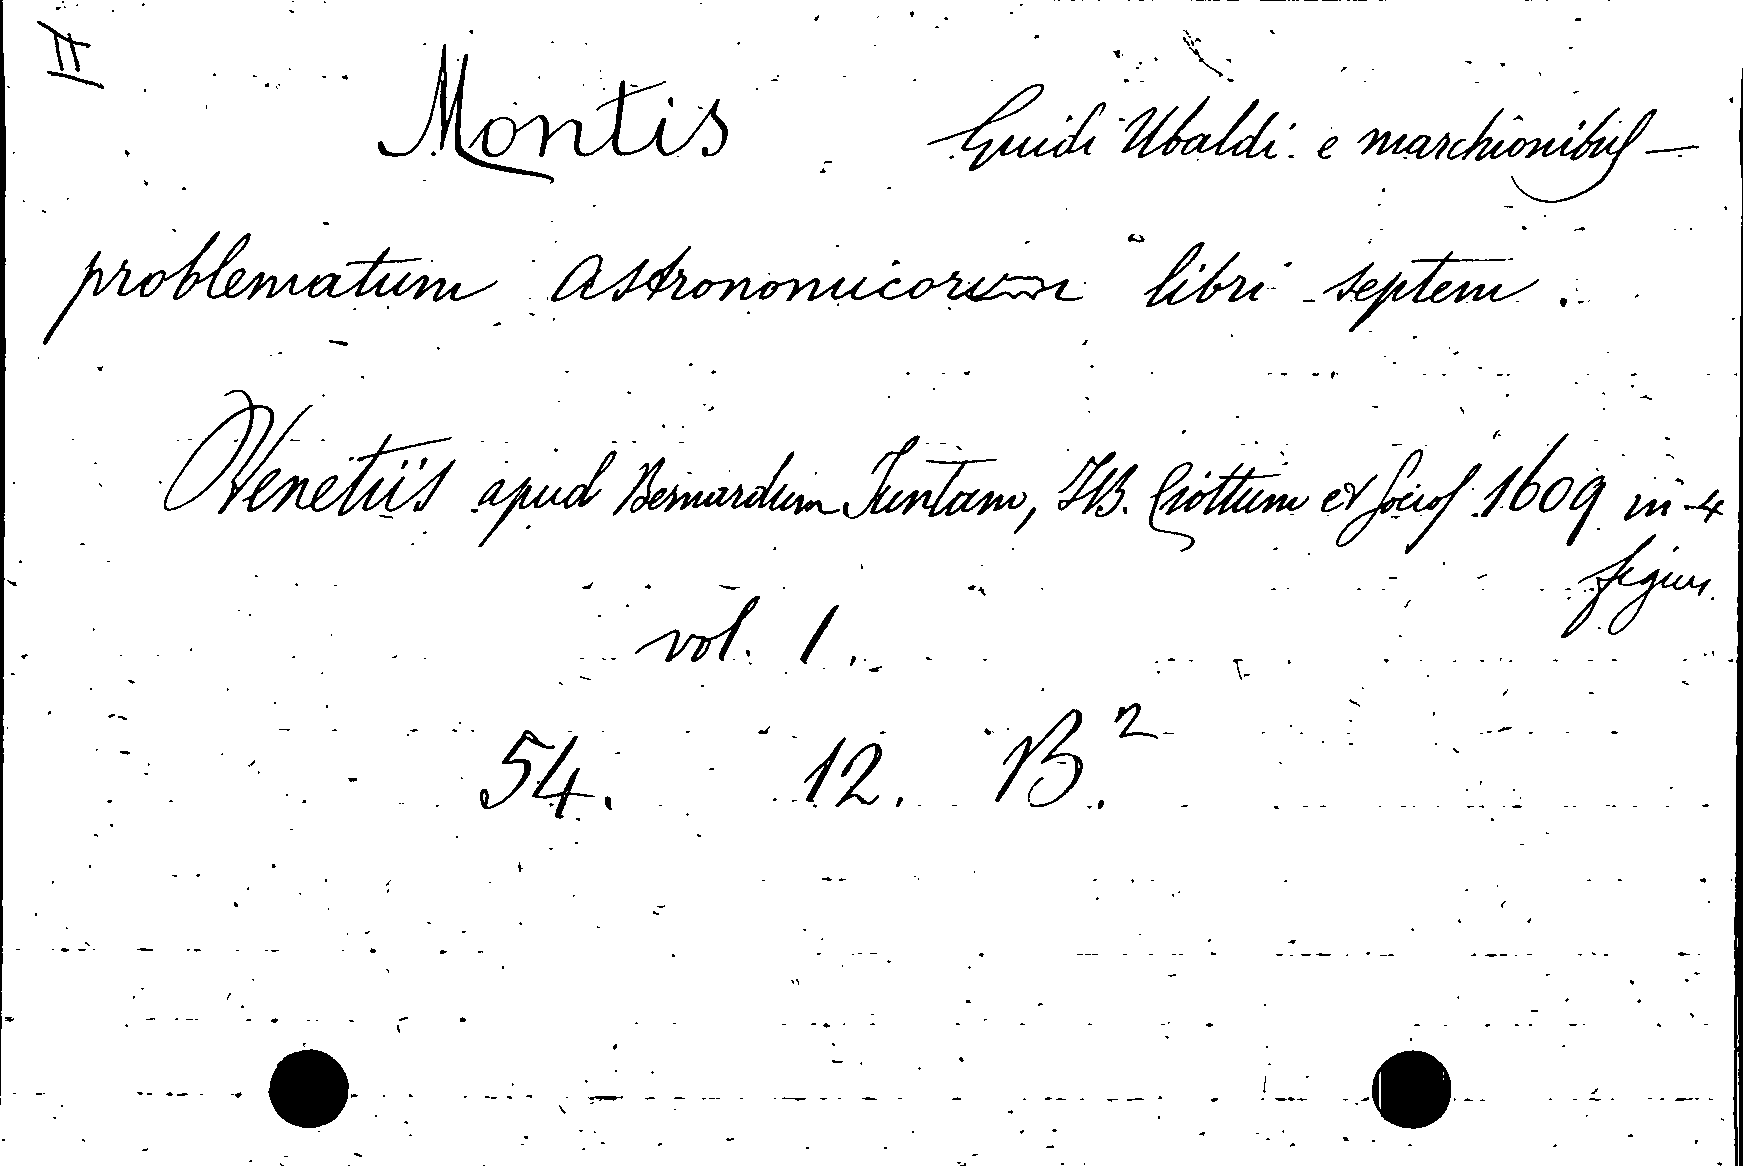 II
Montis Guidi Ubaldi e marchionibus —
problematum astronomicorum libri septem.
Venetiis apud Bernardum Juntam, J.B. Ciottum et socios 1609 in-4
figur.
vol. 1.
54. 12. B.²